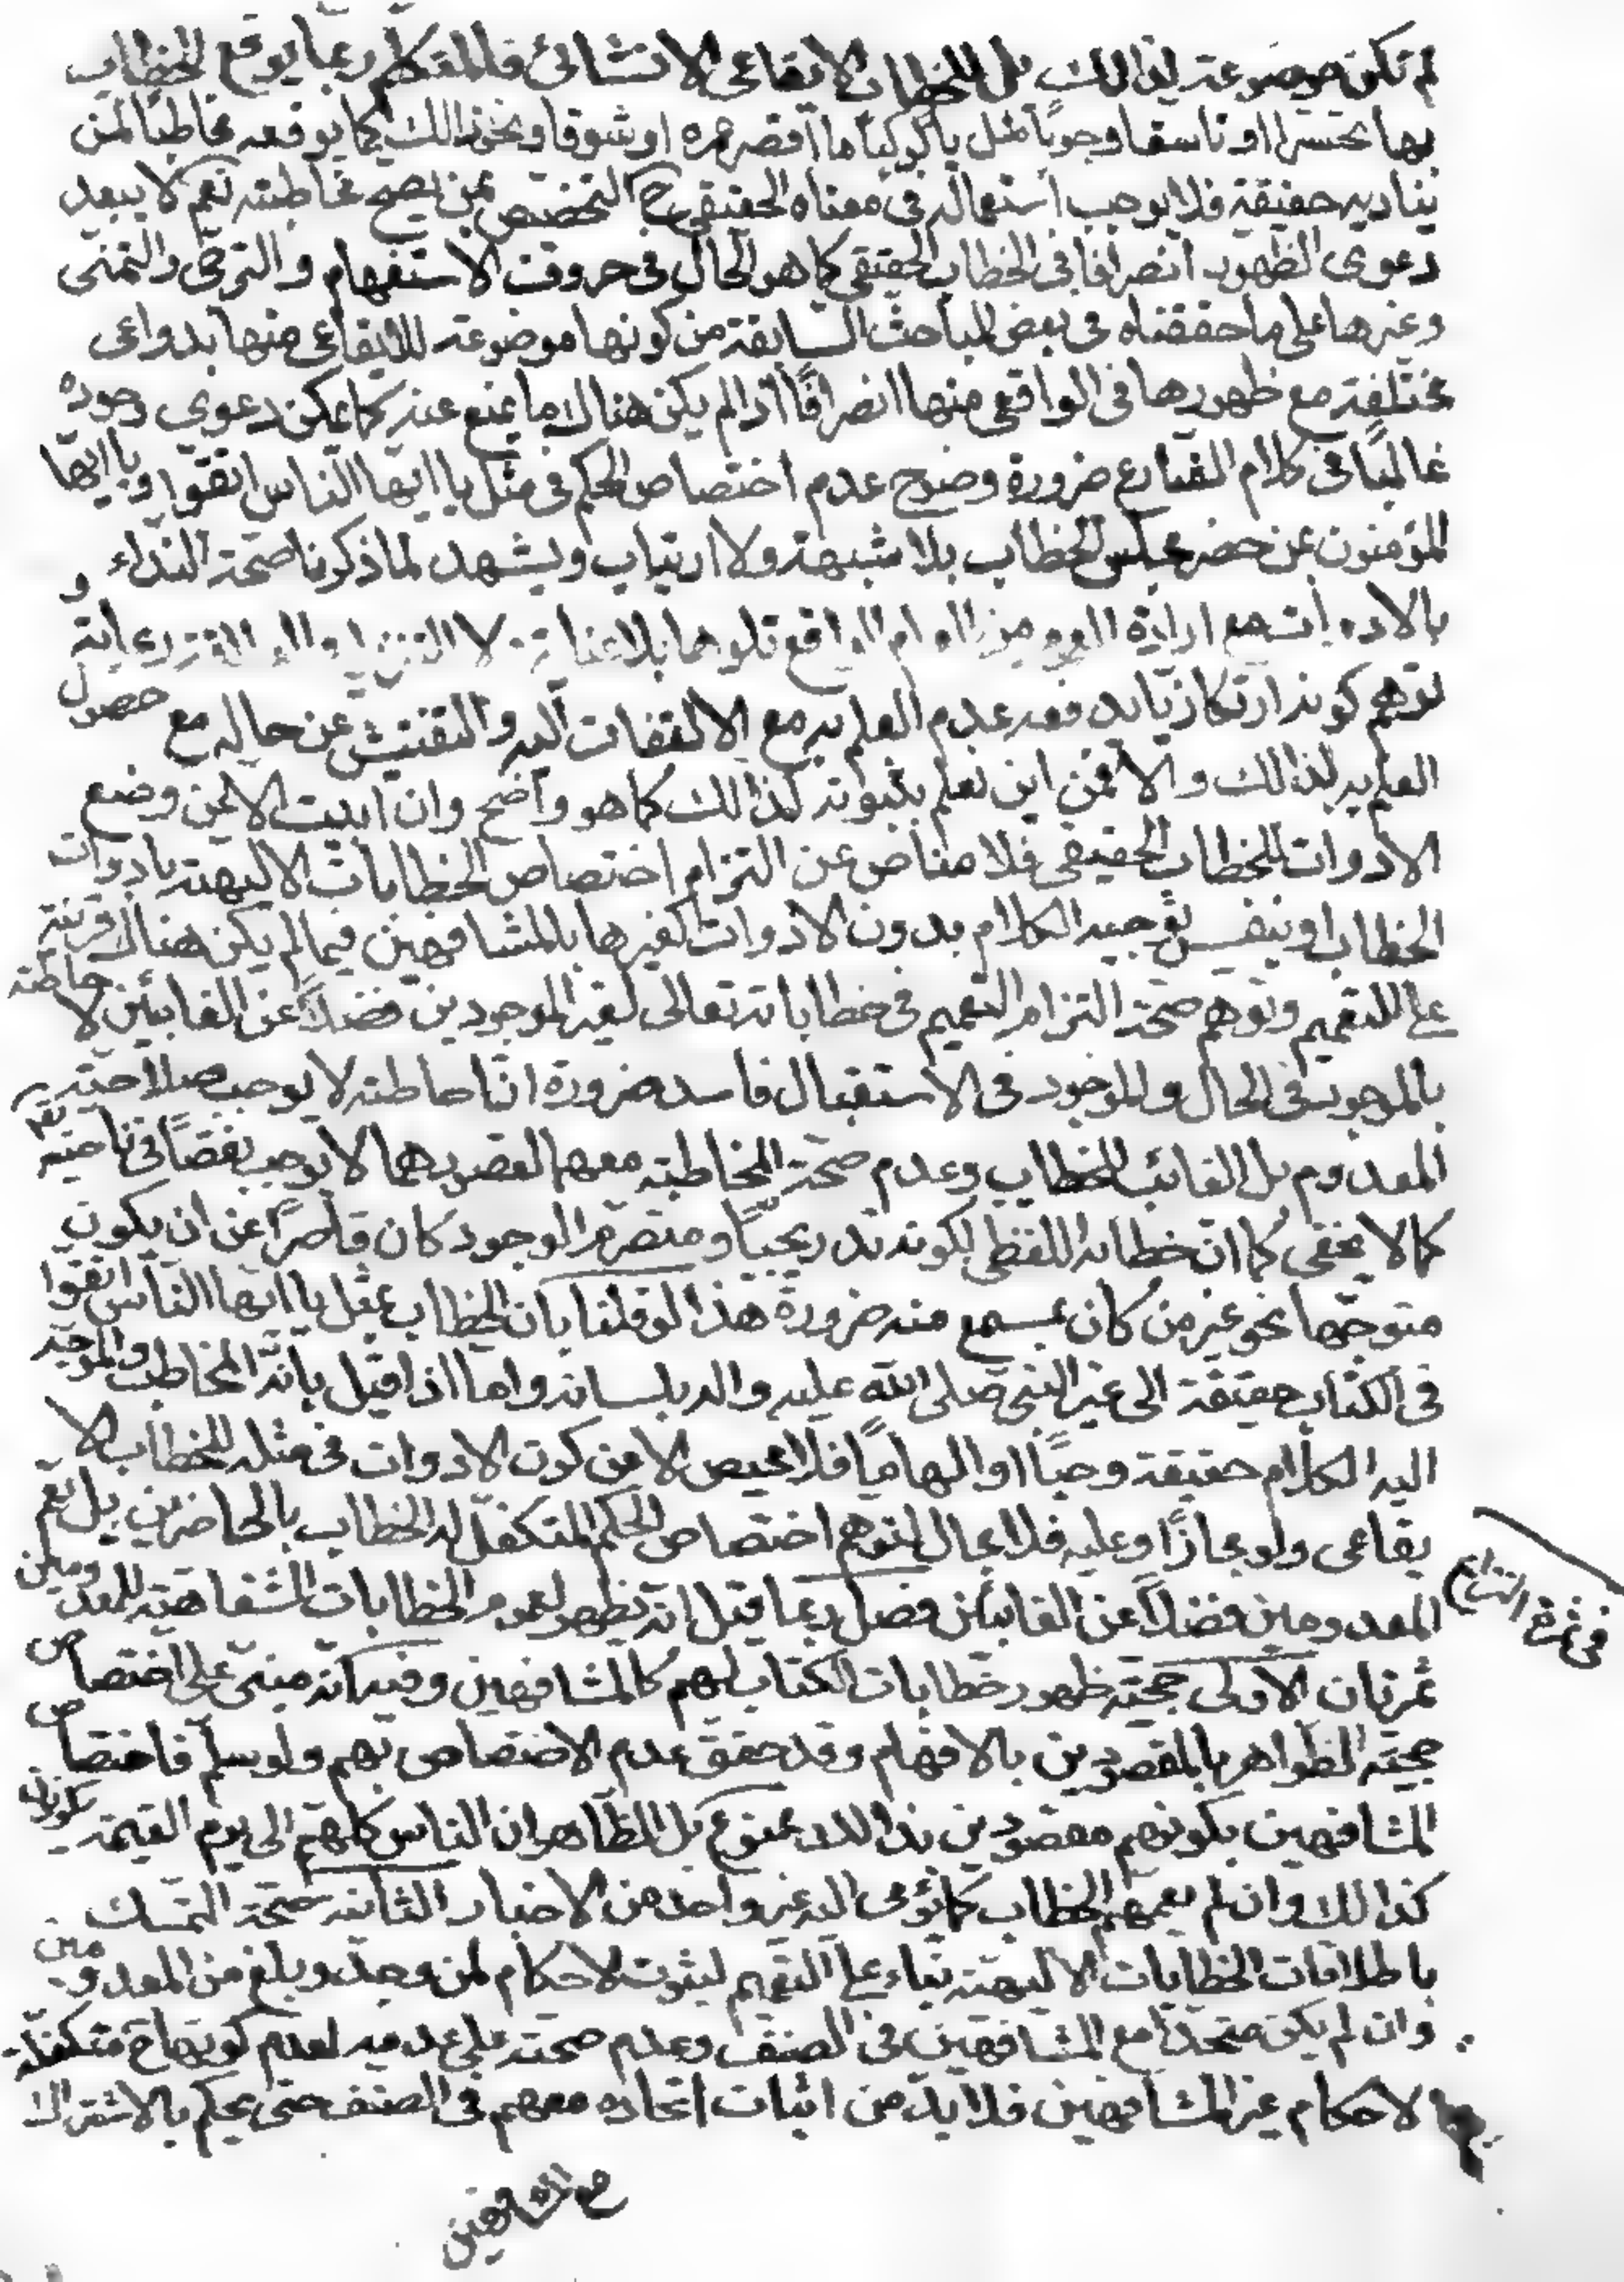 لم تكن موضوعة لذالك بل للخطاب الايقاعى الانشائى فالمتكلم ربما يوقع الخطاب
بها تحسرا او تاسفا وحزنا مثل يا كوكبا ما اقصر عمره او شوقا ونحو ذالك كما يوقعه مخاطبا لمن
يناديه حقيقة فلا يوجب استعماله فى معناه الحقيقى ح التخصيص بمن يصح مخاطبته نعم لا يبعد
دعوى الظهور انصرافا فى الخطاب الحقيقى كما هو الحال فى حروف الاستفهام والترجى والتمنى
وغيرها على ما حققناه فى بعض المباحث السابقة من كونها موضوعة للايقاعى منها بدواعى
مختلفة مع ظهورها فى الواقعى منها انصرافًا اذا لم يكن هناك ما يمنع عنه كما يمكن دعوى وجوده
غالبًا فى كلام الشارع ضرورة وضوح عدم اختصاص الحكم فى مثل يا ايها الناس اتقوا ويا ايها
المؤمنون بمن حضر مجلس الخطاب بلا شبهة ولا ارتياب ويشهد لما ذكرنا صحة النداء
بالادوات مع ارادة العموم من العام الواقع تلوها بلا عناية ولا للتنزيل والعلاقة رعاية و
توهم كونه ارتكازيا يدفعه عدم العلم به مع الالتفات اليه والتفتيش عن حاله مع حصول
العلم به لذالك والا فمن اين نعلم بثبوته كذالك كما هو واضح وان ابيت الا عن وضع
الادوات للخطاب الحقيقى فلا مناص عن التزام اختصاص الخطابات الالهية بادوات
الخطاب او بنفس توجيه الكلام بدون الادوات كغيرها بالمشافهين فيما لم يكن هناك قرينة
على التعميم وتوهم صحة التزام التعميم فى خطاباته تعالى لغير الموجودين فضلاً عن الغائبين لاحاطته
بالموجود فى الحال والموجود فى الاستقبال فاسد ضرورة ان احاطته لا توجب صلاحية
المعدوم بل الغائب للخطاب وعدم صحة المخاطبة معهما لقصورهما لا يوجب نقصًا فى ناحيته تعم
كما لا يخفى كما ان خطابه اللفظى لكونه تدريجيًا ومتصرم الوجود كان قاصرًا عن ان يكون
متوجها نحو غير من كان بمسمع منه ضرورة هذا لو قلنا بان الخطاب بمثل يا ايها الناس اتقوا
فى الكتاب حقيقة الى غير النبى صلى الله عليه واله بلسانه واما اذا قيل بانه المخاطب والموجه
اليه الكلام حقيقة وحيًا او الهامًا فلا محيص الا عن كون الادوات فى مثله للخطاب الا
يقاعى ولو مجازًا وعليه فلا مجال لتوهم اختصاص الحكم المتكفل له الخطاب بالحاضرين بل يعم
المعدومين فضلاً عن الغائبين فصل ربما قيل انه يظهر لعموم الخطابات الشفاهية للمعدومين
فى ثمرة النزاع
ثمرتان الاولى حجية ظهور خطابات الكتاب لهم كالمشافهين وفيه انه مبنى على اختصاص
حجية الظواهر بالمقصودين بالافهام وقد حقق عدم الاختصاص بهم ولو سلم فاختصاص
المشافهين بكونهم مقصودين بذالك ممنوع بل الظاهر ان الناس كلهم الى يوم القيمة يكونون
كذالك وان لم يعمهم الخطاب كما يومى اليه غير واحد من الاخبار الثانية صحة التمسك
باطلاقات الخطابات الالهية بناء على التعميم لثبوت الاحكام لمن وجد وبلغ من المعدومين
وان لم يكن متحدًا مع المشافهين فى الصنف وعدم صحته على عدمه لعدم كونها ح متكفلة
لاحكام غير المشافهين فلا بد من اثبات اتحاده معهم فى الصنف حتى يحكم بالاشتراك
مع المشافهين